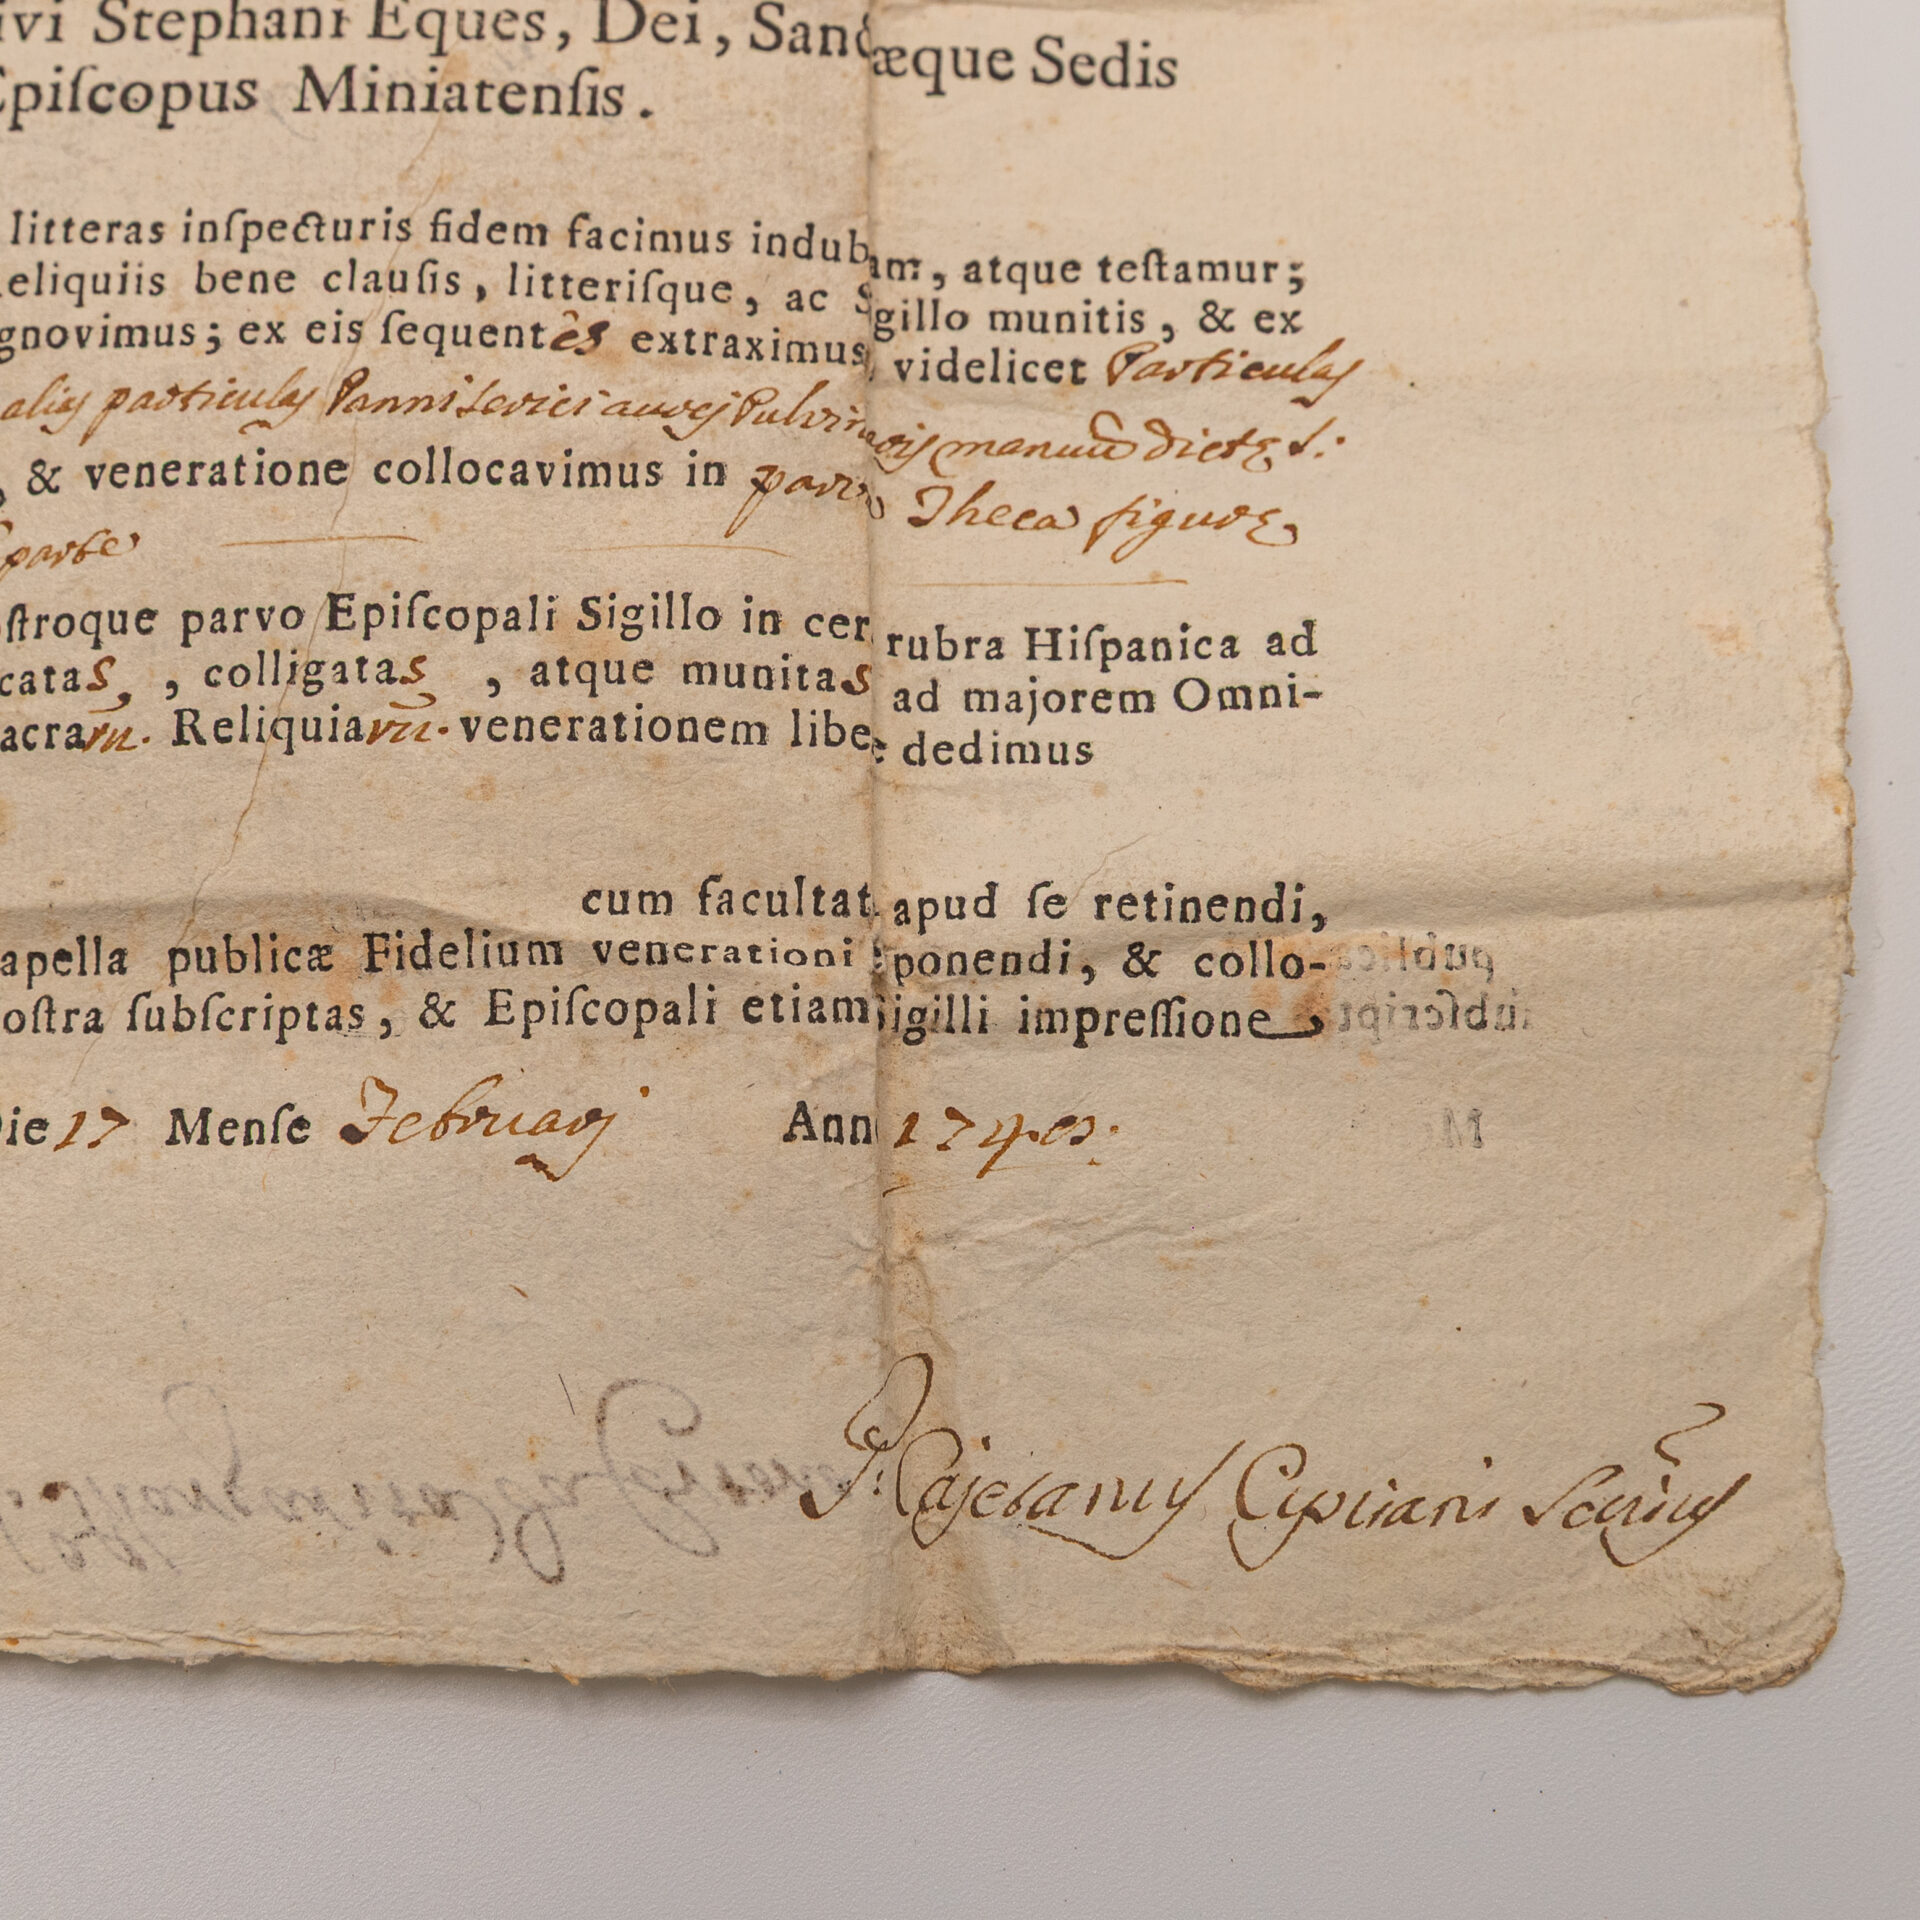 ivi Stephani Eques, Dei, Sanctæque Sedis
Epiſcopus Miniatenſis.
litteras inſpecturis fidem facimus indub am, atque teſtamur;
eliquiis bene clauſis, litteriſque, ac Sigillo munitis, & ex
gnovimus; ex eis ſequentes extraximus, videlicet Particulas
alias particulas Panni serici aurej Pulvinaris manuũ dictę S:
, & veneratione collocavimus in parva Theca figurę
parte
oſtroque parvo Epiſcopali Sigillo in cer rubra Hiſpanica ad
catas, , colligatas, , atque munitas ad majorem Omni-
acrarũ. Reliquiarũ. venerationem libe e dedimus
cum facultat. apud ſe retinendi,
apella publicæ Fidelium venerationi ponendi, & collo-
oſtra ſubſcriptas, & Epiſcopali etiam ſigilli impreſſione,
Die 17 Menſe Februarj Ann 174
Cajetanus Cipriani Secrius